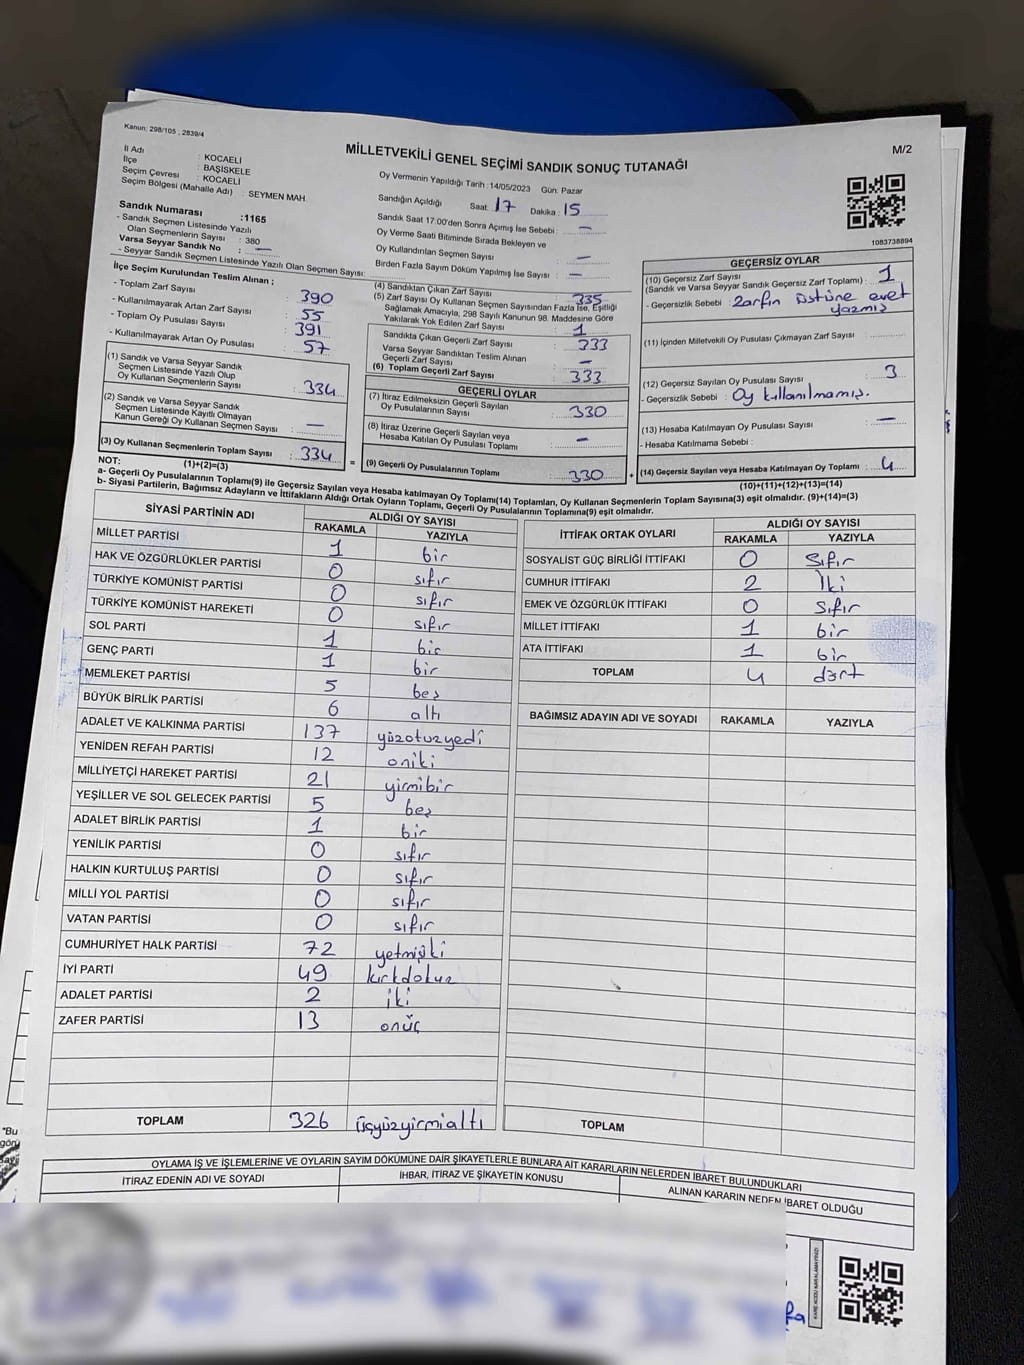 Kanun: 298/105 , 2839/4
MİLLETVEKİLİ GENEL SEÇİMİ SANDIK SONUÇ TUTANAĞI
M/2
İl Adı : KOCAELİ
İlçe : BAŞİSKELE
Seçim Çevresi : KOCAELİ
Seçim Bölgesi (Mahalle Adı) : SEYMEN MAH
Sandık Numarası :1165
- Sandık Seçmen Listesinde Yazılı
Olan Seçmenlerin Sayısı : 380
Varsa Seyyar Sandık No : —
- Seyyar Sandık Seçmen Listesinde Yazılı Olan Seçmen Sayısı:
Oy Vermenin Yapıldığı Tarih : 14/05/2023 Gün: Pazar
Sandığın Açıldığı Saat: 17 Dakika : 15
Sandık Saat 17:00'den Sonra Açımış İse Sebebi : —
Oy Verme Saati Bitiminde Sırada Bekleyen ve
Oy Kullandırılan Seçmen Sayısı : —
Birden Fazla Sayım Döküm Yapılmış İse Sayısı : —
1083738894
İlçe Seçim Kurulundan Teslim Alınan ;
- Toplam Zarf Sayısı : 390
- Kullanılmayarak Artan Zarf Sayısı : 55
- Toplam Oy Pusulası Sayısı : 391
- Kullanılmayarak Artan Oy Pusulası : 57
(1) Sandık ve Varsa Seyyar Sandık
Seçmen Listesinde Yazılı Olup
Oy Kullanan Seçmenlerin Sayısı : 334
(2) Sandık ve Varsa Seyyar Sandık
Seçmen Listesinde Kayıtlı Olmayan
Kanun Gereği Oy Kullanan Seçmen Sayısı : —
(3) Oy Kullanan Seçmenlerin Toplam Sayısı : 334
(1)+(2)=(3)
(4) Sandıktan Çıkan Zarf Sayısı : 335
(5) Zarf Sayısı Oy Kullanan Seçmen Sayısından Fazla İse, Eşitliği
Sağlamak Amacıyla, 298 Sayılı Kanunun 98. Maddesine Göre
Yakılarak Yok Edilen Zarf Sayısı : 1
Sandıkta Çıkan Geçerli Zarf Sayısı : 333
Varsa Seyyar Sandıktan Teslim Alınan
Geçerli Zarf Sayısı : —
(6) Toplam Geçerli Zarf Sayısı : 333
GEÇERLİ OYLAR
(7) İtiraz Edilmeksizin Geçerli Sayılan
Oy Pusulalarının Sayısı : 330
(8) İtiraz Üzerine Geçerli Sayılan veya
Hesaba Katılan Oy Pusulası Toplamı : —
= (9) Geçerli Oy Pusulalarının Toplamı : 330 +
GEÇERSİZ OYLAR
(10) Geçersiz Zarf Sayısı : 1
(Sandık ve Varsa Seyyar Sandık Geçersiz Zarf Toplamı)
- Geçersizlik Sebebi : Zarfın üstüne evet
yazmış
(11) İçinden Milletvekili Oy Pusulası Çıkmayan Zarf Sayısı :
(12) Geçersiz Sayılan Oy Pusulası Sayısı : 3
- Geçersizlik Sebebi : Oy kullanılmamış.
(13) Hesaba Katılmayan Oy Pusulası Sayısı : —
- Hesaba Katılmama Sebebi :
(14) Geçersiz Sayılan veya Hesaba Katılmayan Oy Toplamı : 4
(10)+(11)+(12)+(13)=(14)
NOT:
a- Geçerli Oy Pusulalarının Toplamı(9) ile Geçersiz Sayılan veya Hesaba katılmayan Oy Toplam(14) Toplamları, Oy Kullanan Seçmenlerin Toplam Sayısına(3) eşit olmalıdır. (9)+(14)=(3)
b- Siyasi Partilerin, Bağımsız Adayların ve İttifakların Aldığı Ortak Oyların Toplamı, Geçerli Oy Pusulalarının Toplamına(9) eşit olmalıdır.
SİYASİ PARTİNİN ADI ALDIĞI OY SAYISI
RAKAMLA YAZIYLA
MİLLET PARTİSİ 1 bir
HAK VE ÖZGÜRLÜKLER PARTİSİ 0 sıfır
TÜRKİYE KOMÜNİST PARTİSİ 0 sıfır
TÜRKİYE KOMÜNİST HAREKETİ 0 sıfır
SOL PARTİ 1 bir
GENÇ PARTİ 1 bir
MEMLEKET PARTİSİ 5 beş
BÜYÜK BİRLİK PARTİSİ 6 altı
ADALET VE KALKINMA PARTİSİ 137 yüzotuzyedi
YENİDEN REFAH PARTİSİ 12 oniki
MİLLİYETÇİ HAREKET PARTİSİ 21 yirmibir
YEŞİLLER VE SOL GELECEK PARTİSİ 5 beş
ADALET BİRLİK PARTİSİ 1 bir
YENİLİK PARTİSİ 0 sıfır
HALKIN KURTULUŞ PARTİSİ 0 sıfır
MİLLİ YOL PARTİSİ 0 sıfır
VATAN PARTİSİ 0 sıfır
CUMHURİYET HALK PARTİSİ 72 yetmişiki
İYİ PARTİ 49 kırkdokuz
ADALET PARTİSİ 2 iki
ZAFER PARTİSİ 13 onüç
TOPLAM 326 üçyüzyirmialtı
İTTİFAK ORTAK OYLARI ALDIĞI OY SAYISI
RAKAMLA YAZIYLA
SOSYALİST GÜÇ BİRLİĞİ İTTİFAKI 0 Sıfır
CUMHUR İTTİFAKI 2 İki
EMEK VE ÖZGÜRLÜK İTTİFAKI 0 Sıfır
MİLLET İTTİFAKI 1 bir
ATA İTTİFAKI 1 bir
TOPLAM 4 dört
BAĞIMSIZ ADAYIN ADI VE SOYADI RAKAMLA YAZIYLA
TOPLAM
OYLAMA İŞ VE İŞLEMLERİNE VE OYLARIN SAYIM DÖKÜMÜNE DAİR ŞİKAYETLERLE BUNLARA AİT KARARLARIN NELERDEN İBARET BULUNDUKLARI
İTİRAZ EDENİN ADI VE SOYADI İHBAR, İTİRAZ VE ŞİKAYETİN KONUSU ALINAN KARARIN NEDEN İBARET OLDUĞU
"Bu